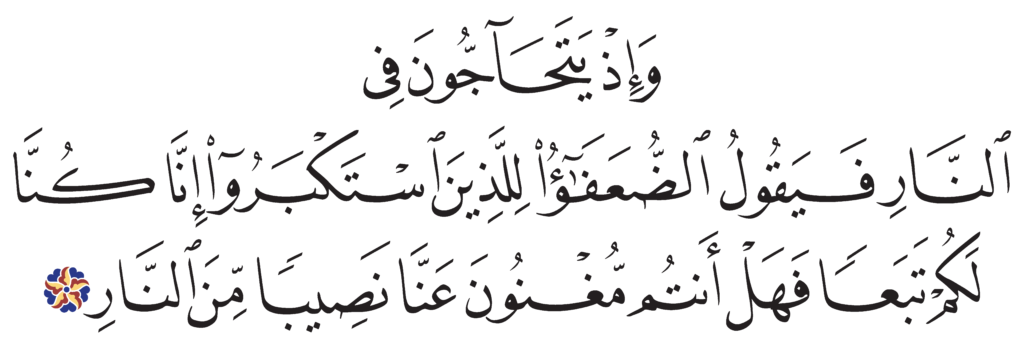 وَإِذْ يَتَحَآجُّونَ فِى
ٱلنَّارِ فَيَقُولُ ٱلضُّعَفَـٰٓؤُا۟ لِلَّذِينَ ٱسْتَكْبَرُوٓا۟ إِنَّا كُنَّا
لَكُمْ تَبَعًا فَهَلْ أَنتُم مُّغْنُونَ عَنَّا نَصِيبًا مِّنَ ٱلنَّارِ